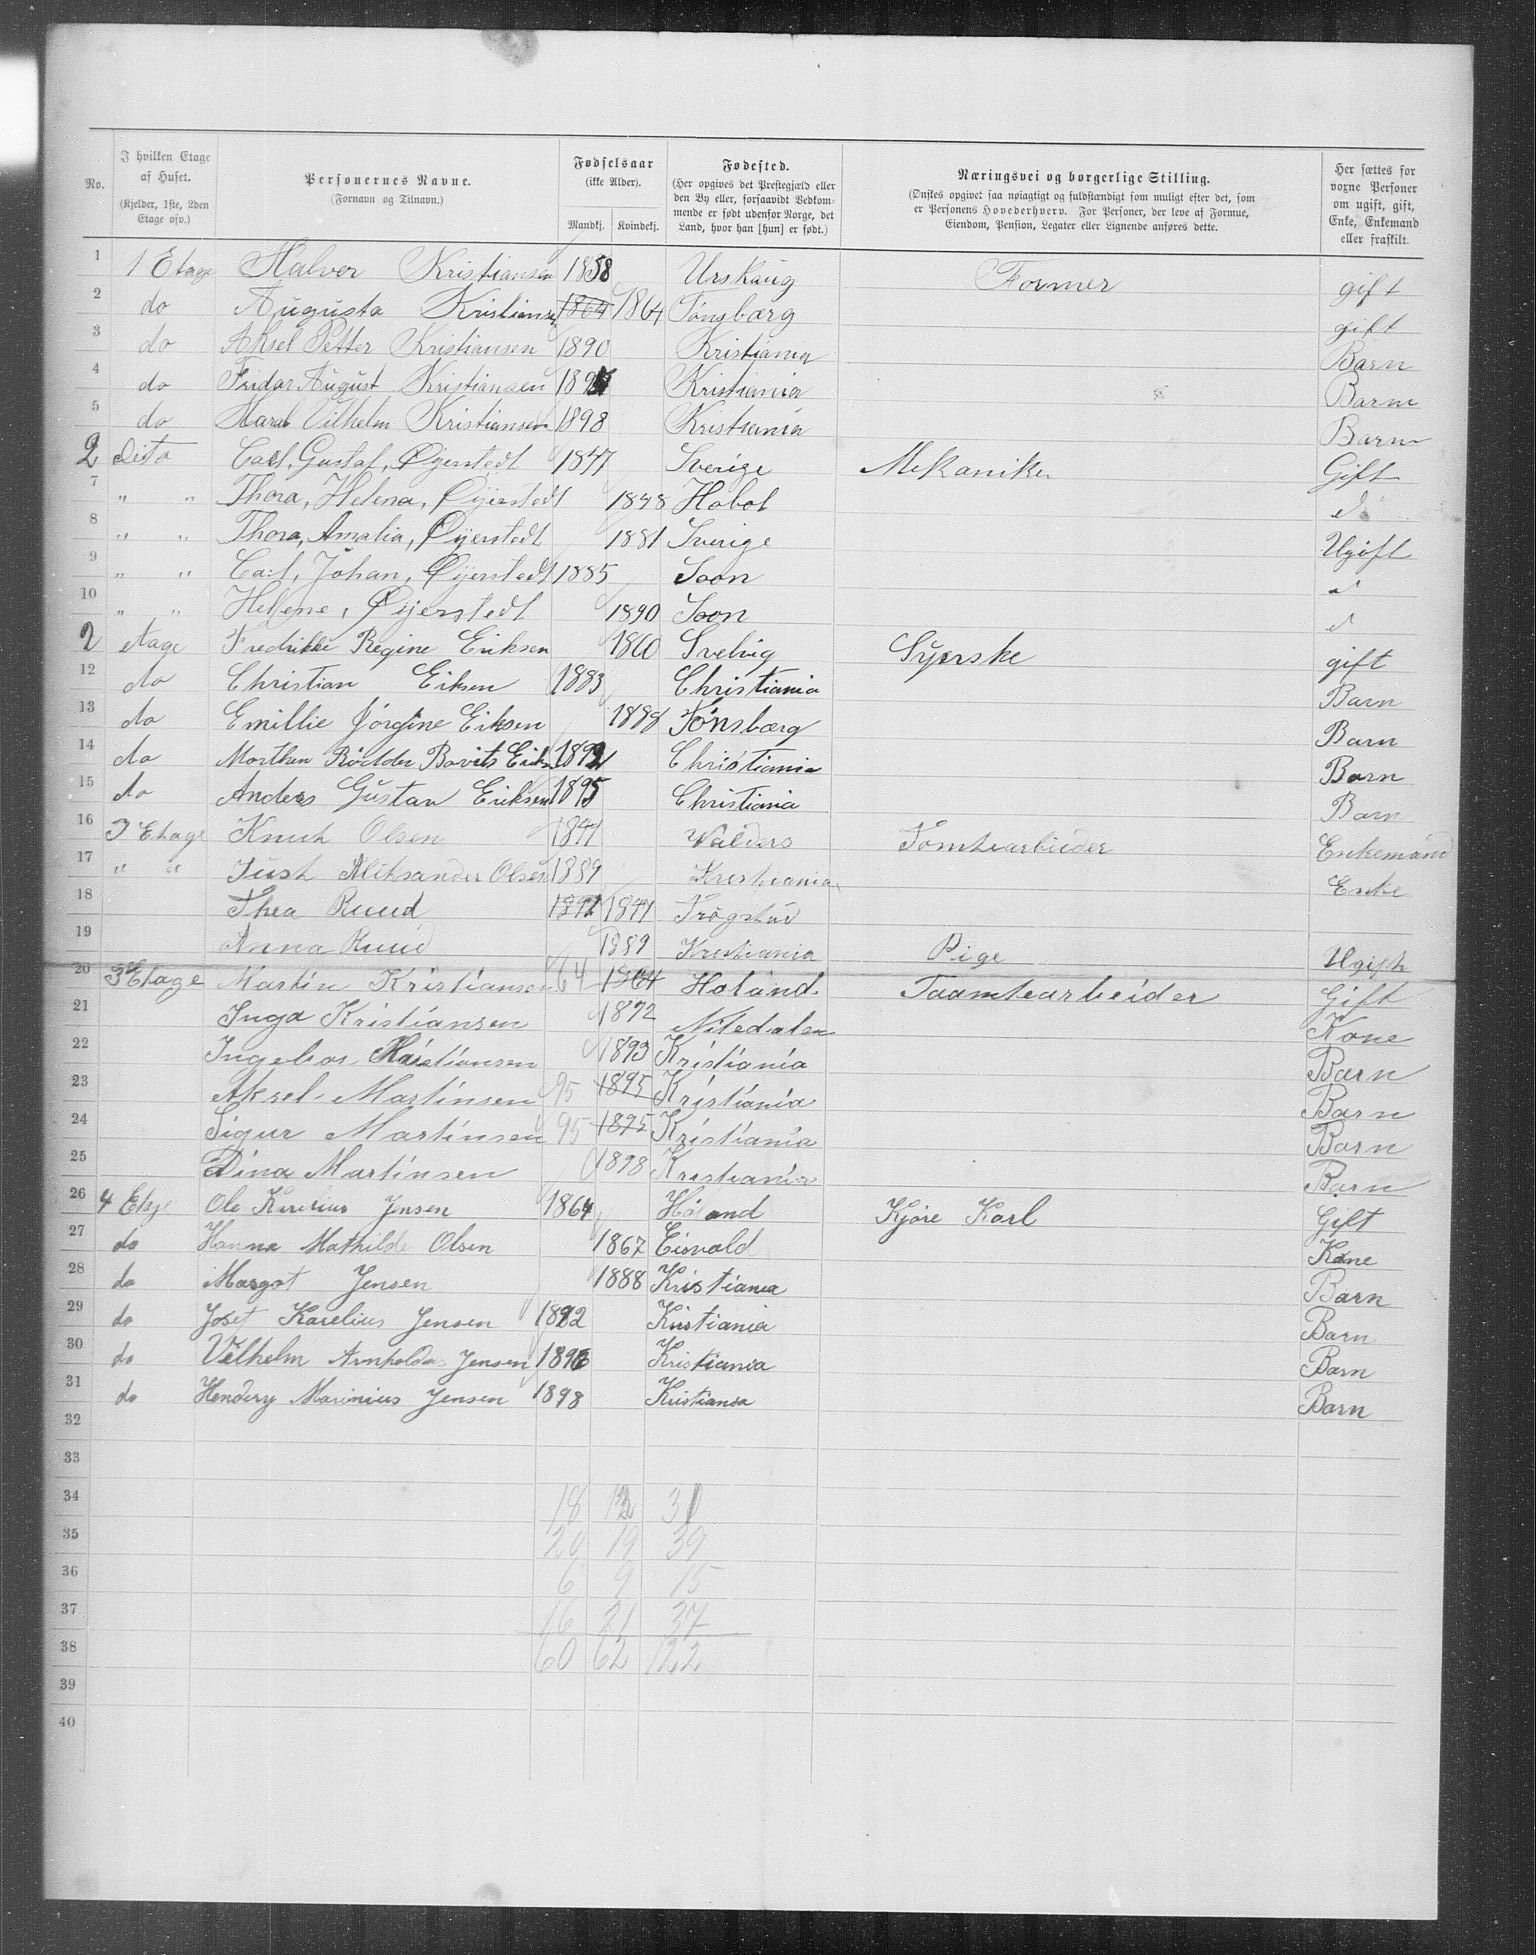 No. I hvilken Etage af Huset. (Kjelder, 1ste, 2den Etage osv.) Personernes Navne. (Fornavn og Tilnavn.) Fødselsaar (ikke Alder). Mandkj. Kvindekj. Fødested. (Her opgives det Prestegjæld eller den By eller, forsaavidt Vedkommende er født udenfor Norge, det Land, hvor han [hun] er født.) Næringsvei og borgerlige Stilling. (Ønskes opgivet saa nøiagtigt og fuldstændigt som muligt efter det, som er Personens Hovederhverv. For Personer, der leve af Formue, Eiendom, Pension, Legater eller Lignende anføres dette. Her sættes for voxne Personer om ugift, gift, Enke, Enkemand eller fraskilt.
1 1 Etage Halvor Kristiansen 1858 Urskaug Former gift
2 do Augusta Kristianse 1864 1864 Tönsbærg gift
3 do Aksel Petter Kristiansen 1890 Kristiania Barn
4 do Fridar August Kristiansen Kristiania Barn
5 do Haral Vilhelm Kristiansen 1898 Kristiania Barn
2 Dito Carl, Gustaf, Øyerstedt 1847 Sverige Mekaniker Gift
7 " " Thora, Helena, Øyerstedt 1848 Hobøl d
8 " " Thora, Amalia, Øyerstedt 1881 Sverige Ugift
9 " " Carl, Johan, Øyerstedt 1885 Soon d
10 " " Helene, Øyerstedt 1890 Soon d
2 etage Fredrikke Regine Eriksen 1860 Svelvig Syerske gift
12 do Christian Eiksen 1883 Christiania Barn
13 do Emillie Jörgine Eiksen 1888 Tönsbærg Barn
14 do Morthen Rödder Bovits Eriks 1892 Christiania Barn
15 do Anders Gustav Eriksen 1895 Christiania Barn
16 3 Etage Knut Olsen 1841 Valders Tomtearbieder Enkemand
17 " " Just Aliksander Olsen 1889 Kristiania Enke
18 Thea Ruud 1841 1841 Trøgstad
19 Anna Ruud 1889 Kristiania Pige Ugift
20 3 Etage Martin Kristiansen 64 1864 Høland Taamtearbeider Gift
21 Inga Kristiansen 1872 Nitedalen Kone
22 Ingebor Kristiansen 1893 Kristiania Barn
23 Aksel Martinsen 95 1895 Kristiania Barn
24 Sigur Martinsen 95 1895 Kristiania Barn
25 Dina Martinsen 1898 Kristiania Barn
26 4 Etage Ole Jensen 1864 Høland Kjøre Karl Gift
27 do Hanna Mathilde Olsen 1867 Eisvold Kone
28 do Margot Jensen 1888 Kristiania Barn
29 do Josef Karelius Jensen 1892 Kristiania Barn
30 do Vilhelm Arnholda Jensen 1896 Kristiania Barn
31 do Hendery Marinius Jensen 1898 Kristiania Barn
32
33
34 18 13 31
35 20 19 39
36 6 9 15
37 16 21 37
38 60 62 122
39
40